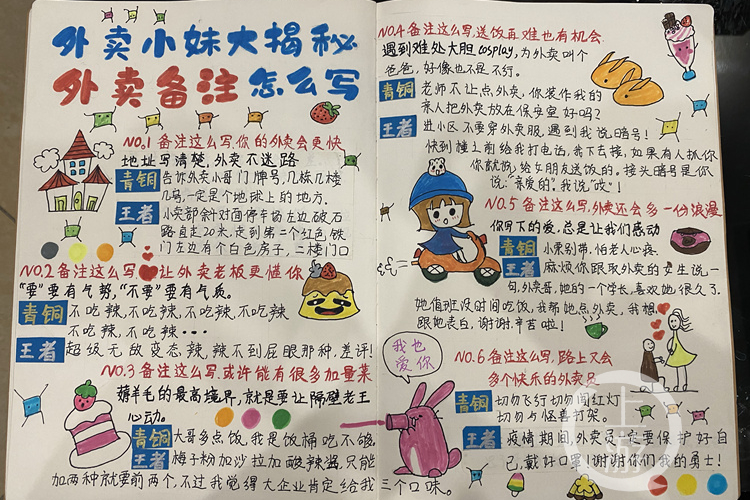 外卖小妹大揭秘
外卖备注怎么写
NO.1 备注这么写,你的外卖会更快
地址写清楚,外卖不迷路
青铜 告诉外卖小哥门牌号,几栋几楼
几号,一定是个地球上的地方.
王者 小卖部斜对面停车场左边,破石
路直走20米,走到第二个红色铁
门左边有个白色房子,二楼门口
NO.2 备注这么写,让外卖老板更懂你
“要”要有气势,“不要”要有气质。
青铜 不吃辣,不吃辣,不吃辣,不吃辣
不吃辣,不吃辣…
王者 超级无敌变态,辣,辣不到屁眼那种,差评!
NO.3 备注这么写,或许能有很多加量菜
薅羊毛的最高境界,就是要让隔壁老王
心动.
青铜 大哥多点饭,我是饭桶吃不够.
王者 梅子粉加沙拉加酸辣酱,只能
加两种就要前两个,不过我觉得大企业肯定给我
三个口味。
NO.4 备注这么写,送饭再难也有机会
遇到难处大胆cosplay,为外卖叫个
爸爸,好像也不是不行.
青铜 老师不让点外卖,你装作我的
亲人把外卖放在保安室好吗?
王者 进小区不要穿外卖服,遇到我说暗号!
快到楼上前给我打电话,我下去接,如果有人抓你
你就说,给女朋友送饭的。接头暗号是你
说:“亲爱的”,我说“哎”!
NO.5 备注这么写,外卖还会多一份浪漫
你写下的爱,总是让我们感动
青铜 小栗别带,怕老人心疼.
王者 麻烦你跟取外卖的女生说一
句,外卖哥,她的一个学长,喜欢她很久了.
她值班没时间吃饭,我帮她点外卖,我想
跟她表白,谢谢,辛苦啦!
我也
爱你
NO.6 备注这么写,路上又会
多个快乐的外卖员
青铜 切勿飞行切勿闯红灯
切勿与怪兽打架.
王者 疫情期间,外卖员一定要保护好自
己,戴好口罩!谢谢你们我的勇士!
上游